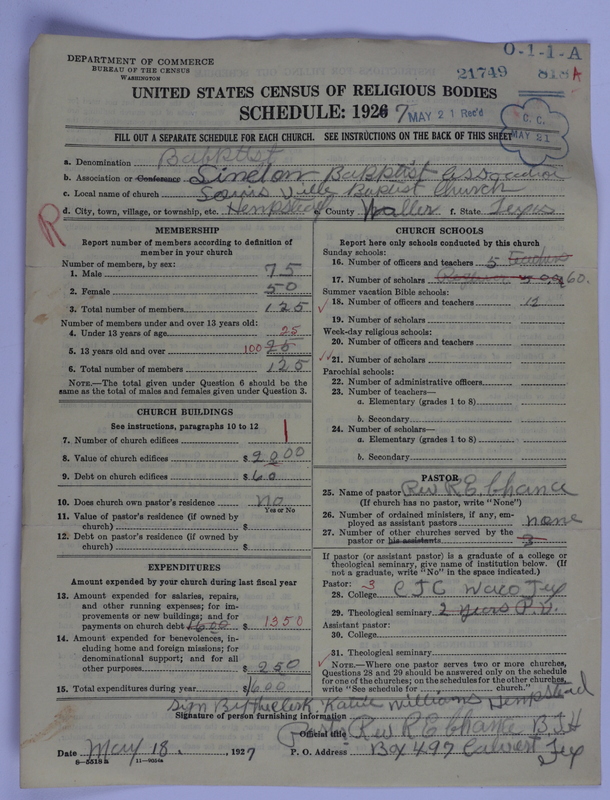 O-1-1-A
DEPARTMENT OF COMMERCE
BUREAU OF THE CENSUS
WASHINGTON
21749 818A
UNITED STATES CENSUS OF RELIGIOUS BODIES
SCHEDULE: 1926 7 MAY 21 Rec'd
C. C. MAY 21
FILL OUT A SEPARATE SCHEDULE FOR EACH CHURCH. SEE INSTRUCTIONS ON THE BACK OF THIS SHEET
a. Denomination Babptist
b. Association or Conference Babptist Association
c. Local name of church Ville Baptist Church
d. City, town, village, or township, etc. Hempstead e. County Waller f. State Texas
R
MEMBERSHIP
Report number of members according to definition of member in your church
Number of members, by sex:
1. Male 75
2. Female 50
3. Total number of members 125
Number of members under and over 13 years old:
4. Under 13 years of age 25
5. 13 years old and over 100 25
6. Total number of members 125
NOTE.—The total given under Question 6 should be the
same as the total of males and females given under Question 3.
CHURCH BUILDINGS
See instructions, paragraphs 10 to 12
7. Number of church edifices 1
8. Value of church edifices $ 2000
9. Debt on church edifices $ 60
10. Does church own pastor's residence no
Yes or No
11. Value of pastor's residence (if owned by
church) $
12. Debt on pastor's residence (if owned by
church) $
EXPENDITURES
Amount expended by your church during last fiscal year
13. Amount expended for salaries, repairs,
and other running expenses; for im-
provements or new buildings; and for
payments on church debt 1600 $ 1350
14. Amount expended for benevolences, in-
cluding home and foreign missions; for
denominational support; and for all
other purposes $ 250
15. Total expenditures during year $ 1600
CHURCH SCHOOLS
Report here only schools conducted by this church
Sunday schools:
16. Number of officers and teachers 5
17. Number of scholars 60.
Summer vacation Bible schools:
18. Number of officers and teachers 12
19. Number of scholars
Week-day religious schools:
20. Number of officers and teachers
21. Number of scholars
Parochial schools:
22. Number of administrative officers
23. Number of teachers—
a. Elementary (grades 1 to 8)
b. Secondary
24. Number of scholars—
a. Elementary (grades 1 to 8)
b. Secondary
PASTOR
25. Name of pastor Rev R E Chance
(If church has no pastor, write "None")
26. Number of ordained ministers, if any, em-
ployed as assistant pastors none
27. Number of other churches served by the
pastor or his assistants 3
If pastor (or assistant pastor) is a graduate of a college or
theological seminary, give name of institution below. (If
not a graduate, write "No" in the space indicated.)
Pastor: 3
28. College C T C Waco Tex
29. Theological seminary 2 years P.V.
Assistant pastor:
30. College
31. Theological seminary
NOTE.—Where one pastor serves two or more churches,
Questions 28 and 29 should be answered only on the schedule
for one of the churches; on the schedules for the other churches,
write "See schedule for church."
Sign By the clerk. Katie Williams Hempstead
Signature of person furnishing information
Official title Rev R E Chance B.T.H
Date May 18., 1927 P. O. Address Box 497 Calvert Tex
8-5518a 11-9054a